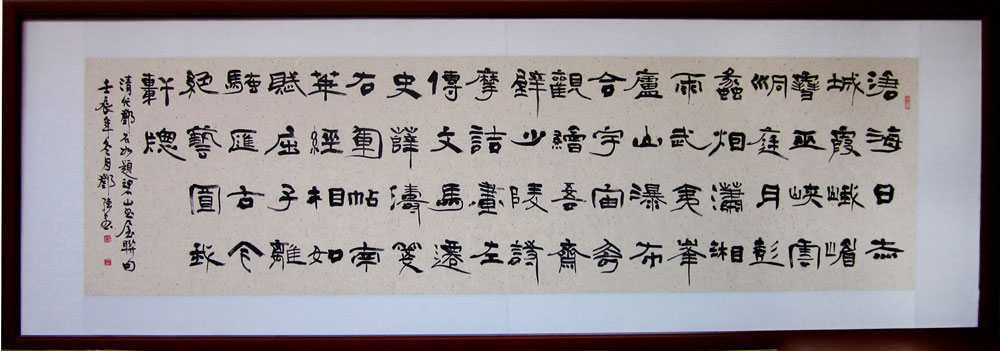 滄海日赤
城霞峨嵋
雪巫峽雲
洞庭月彭
蠡烟瀟湘
雨武夷峯
廬山瀑布
合宇宙奇
觀繪吾齋
壁少陵詩
摩詰畫左
傳文馬遷
史薛濤箋
右軍帖南
華經相如
賦屈子離
騷匯古今
絕藝置我
軒牕
清代鄧石如題碧山書屋聯句
壬辰年冬月鄧書